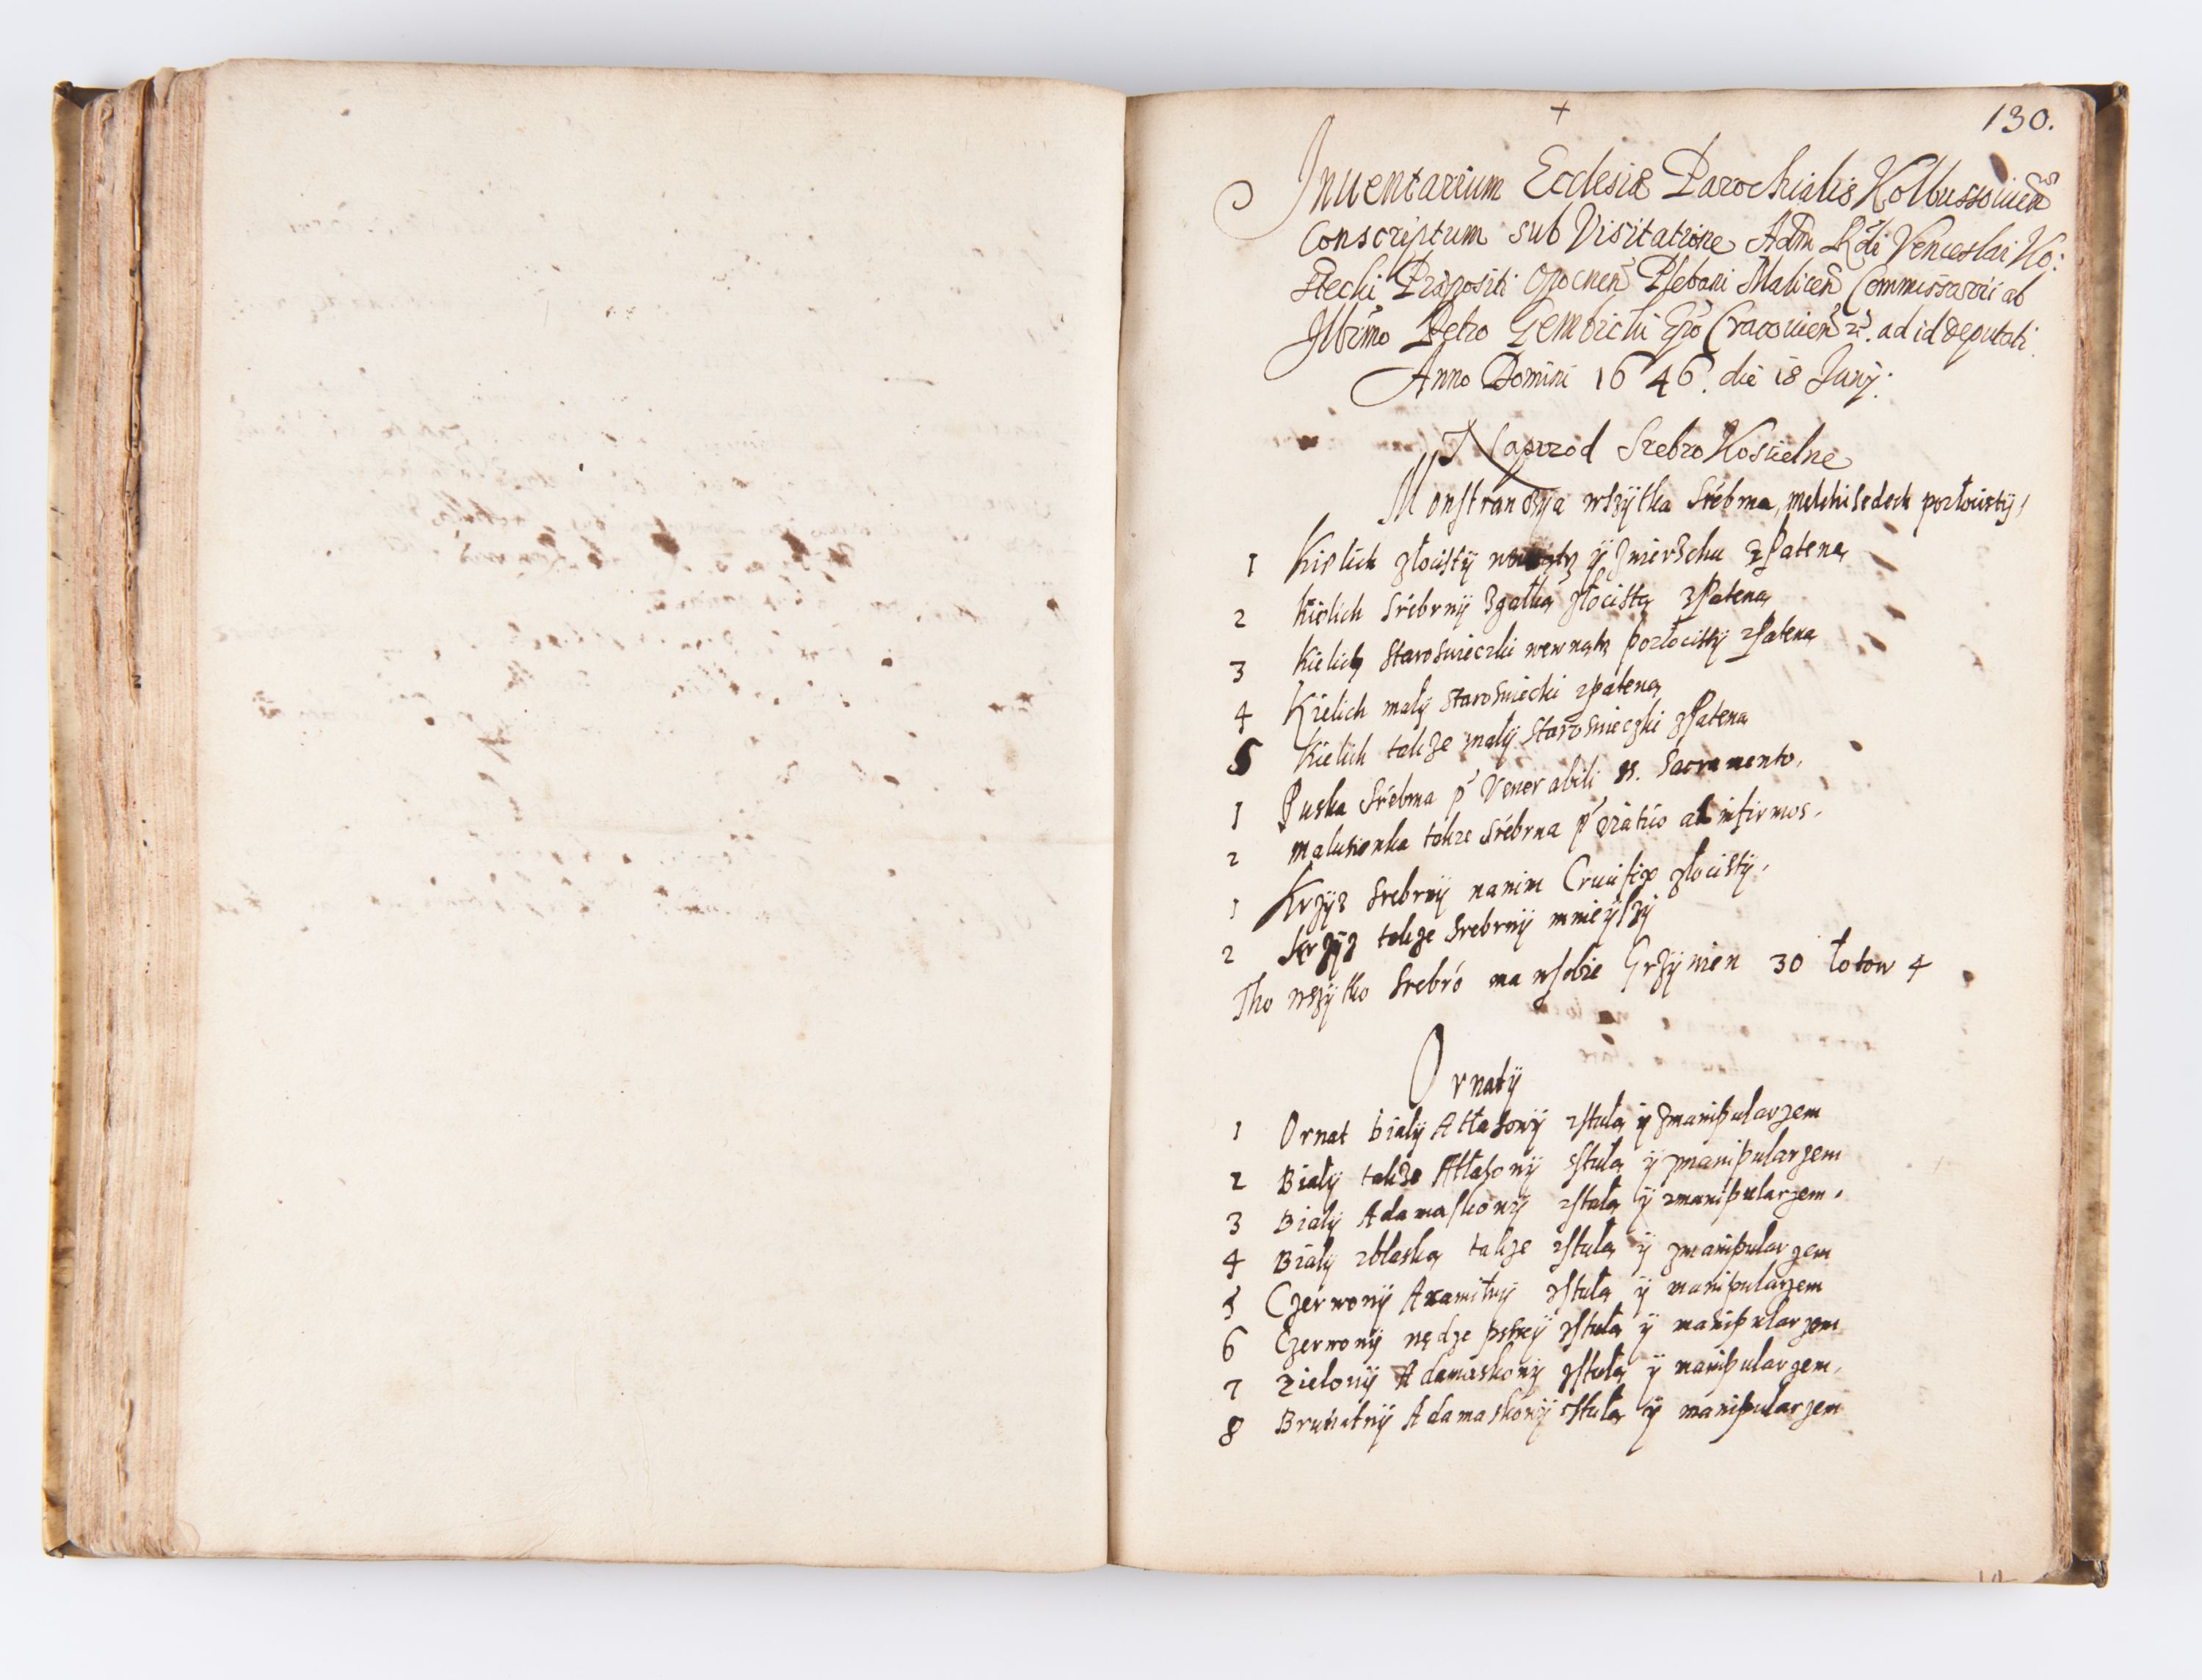 +
130.
Inuentarium Ecclesiæ Parochialis Kolbussouień
Conscriptum sub Visitatione Adm Rdi Venceslai Ko:
stecki Præpositi Opocneń Plebani Maliceń Commissarii ab
Illrmo Petro Gembicki Epo Cracouień ad id deputati
Anno Domini 1646. die 18 Junÿ.
Naprzod Srebro Koscielne
Monstrancÿa wszÿtka srébrna, melchisedech pozłocistÿ,
1 Kielich złocistÿ ÿ zwierzchu zPateną
2 Kielich srébrnÿ zgałką złocistą zPateną
3 Kielich staroswieczki wewnątrz pozłocistÿ zPateną
4 Kielich małÿ staroswiecki zpateną
5 Kielich takze małÿ staroswieczki zPateną
1 Puska Srébrna p Venerabili SS. Sacramento,
2 malusienka takze srébrna p viatico ad infirmos.
1 Krzÿz srebrnÿ nanim Crucifix złocistÿ,
2 krzÿz takze srebrnÿ mnieÿszÿ
Tho wszÿtko srebró ma wsobie Grzÿwien 30 łotow 4
Ornatÿ
1 Ornat białÿ Atłasowÿ zstułą ÿ zmanipularzem
2 Białÿ takze Atłasowÿ zstułą ÿ zmanipularzem
3 Białÿ Adamaskowÿ zstułą ÿ zmanipularzem.
4 Białÿ zblaską takze zstułą ÿ zmanipularzem
5 Czerwonÿ Axamitnÿ zstułą ÿ manipularzem
6 Czerwonÿ zstułą ÿ manipularzem
7 Zielonÿ Adamaskowÿ zstułą ÿ manipularzem,
8 Brunatnÿ Adamaskowÿ zstułą ÿ manipularzem